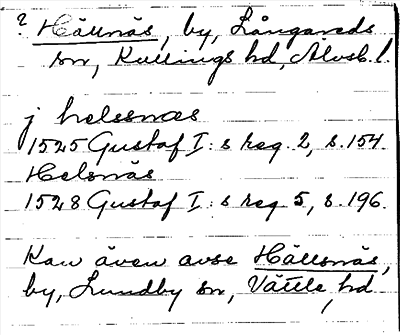 ? Hällnäs, by, Långareds
sn, Kullings hd, Älvsb. l.
j helssnæs
1525 Gustaf I:s reg. 2, s. 154.
Helsnäs
1528 Gustaf I:s reg 5, s. 196.
Kan även avse Hällsnäs,
by, Lundby sn, Vättle hd